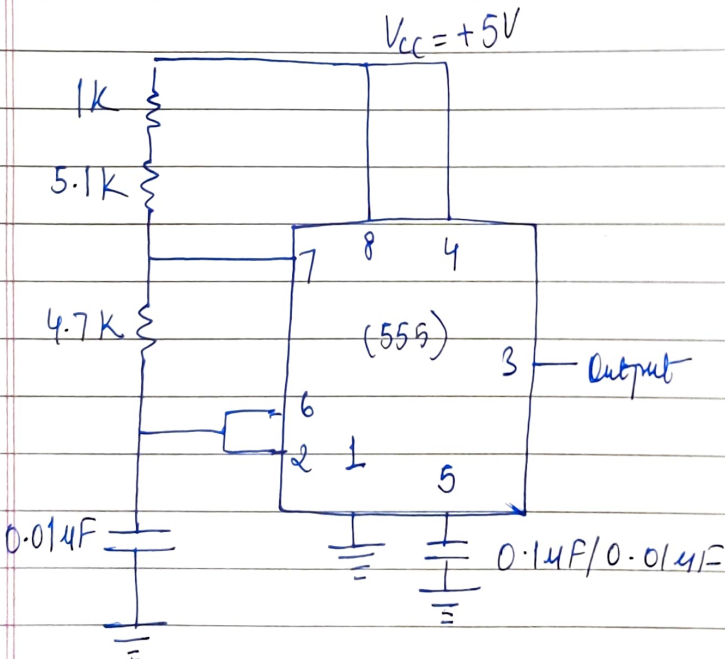 Vcc = +5V
1K
5.1K
8 4
7
4.7K
(555)
3 Output
6
2 1
5
0.01µF
0.1µF/0.01µF